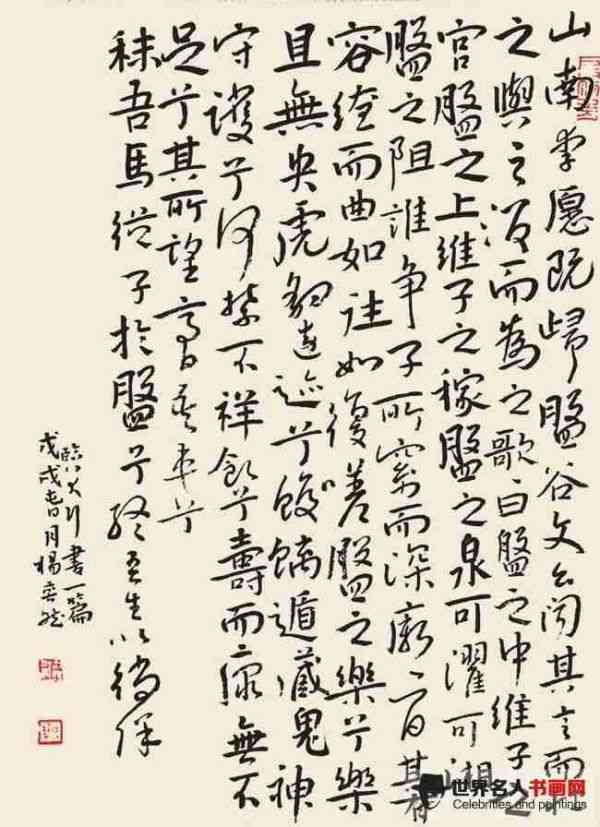 山南李愿既歸盤谷文公聞其言而壯
之與之酒而為之歌曰盤之中維子之
宮盤之上維子之稼盤之泉可濯可湘
盤之阻誰爭子所窈而深廓其有
容繚而曲如往如復嗟盤之樂兮樂
且無央虎豹遠跡兮蛟螭遁藏鬼神
守護兮呵禁不祥飲兮壽而康無不
足兮其所望膏吾車兮
秣吾馬從子於盤兮終吾生以徜徉
臨八大行書一篇
戊戌春月楊
世界名人书画网
Celebrities and paintings